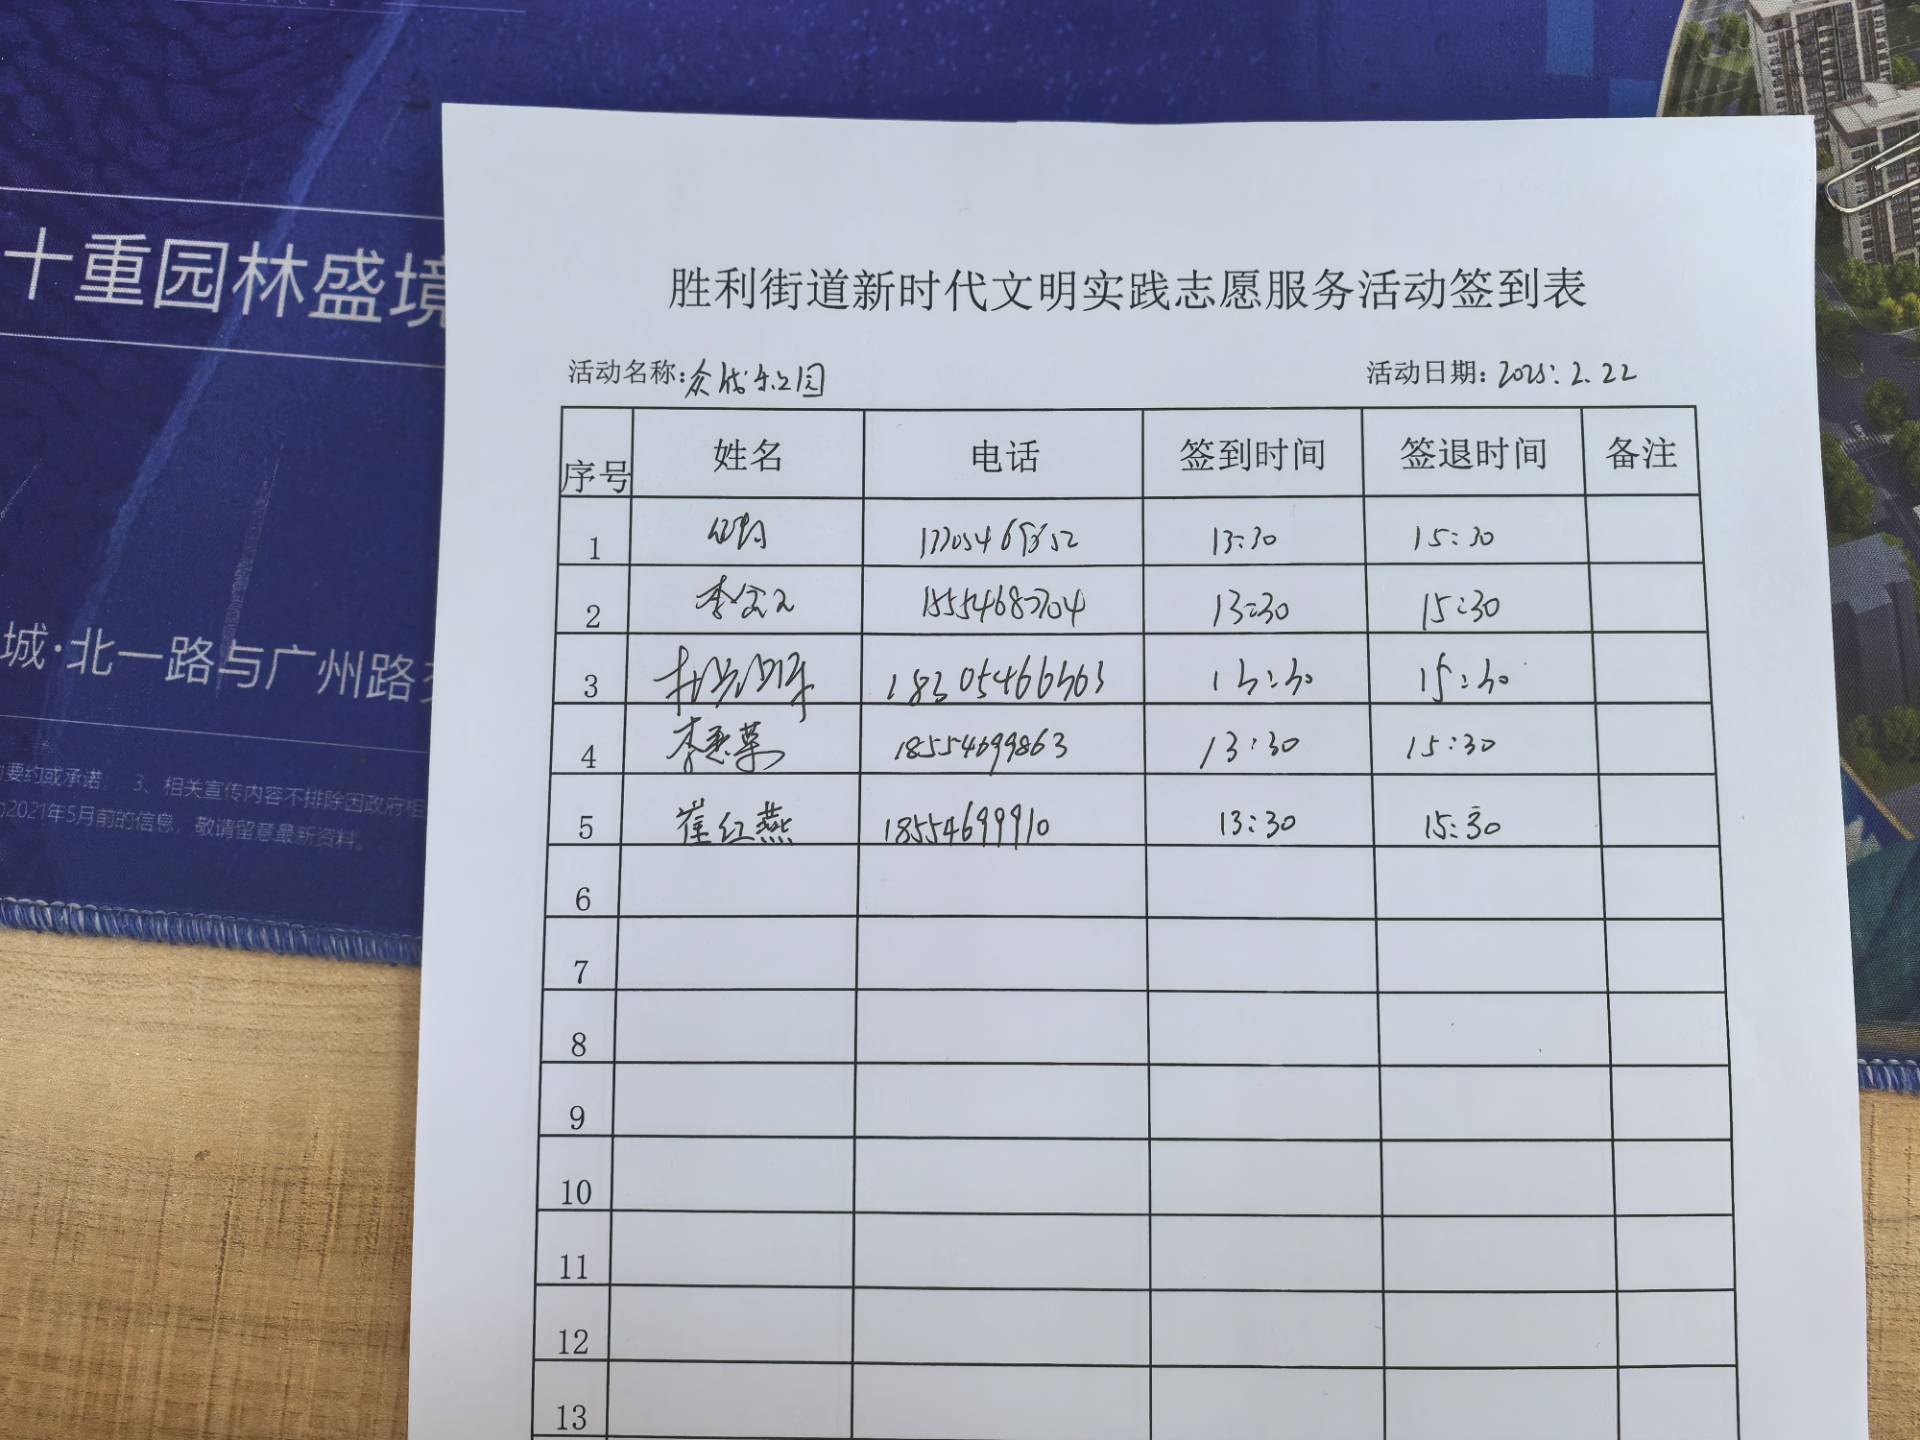 十重园林盛境
城·北一路与广州路
要约或承诺; 3、相关宣传内容不排除因政府相
2021年5月前的信息,敬请留意最新资料。
胜利街道新时代文明实践志愿服务活动签到表
活动名称: 活动日期: 2025.2.22
序号 姓名 电话 签到时间 签退时间 备注
1 13:30 15:30
2 李 18554687704 13:30 15:30
3 18305466363 13:30 15:30
4 李 18554699863 13:30 15:30
5 崔红燕 18554699910 13:30 15:30
6
7
8
9
10
11
12
13